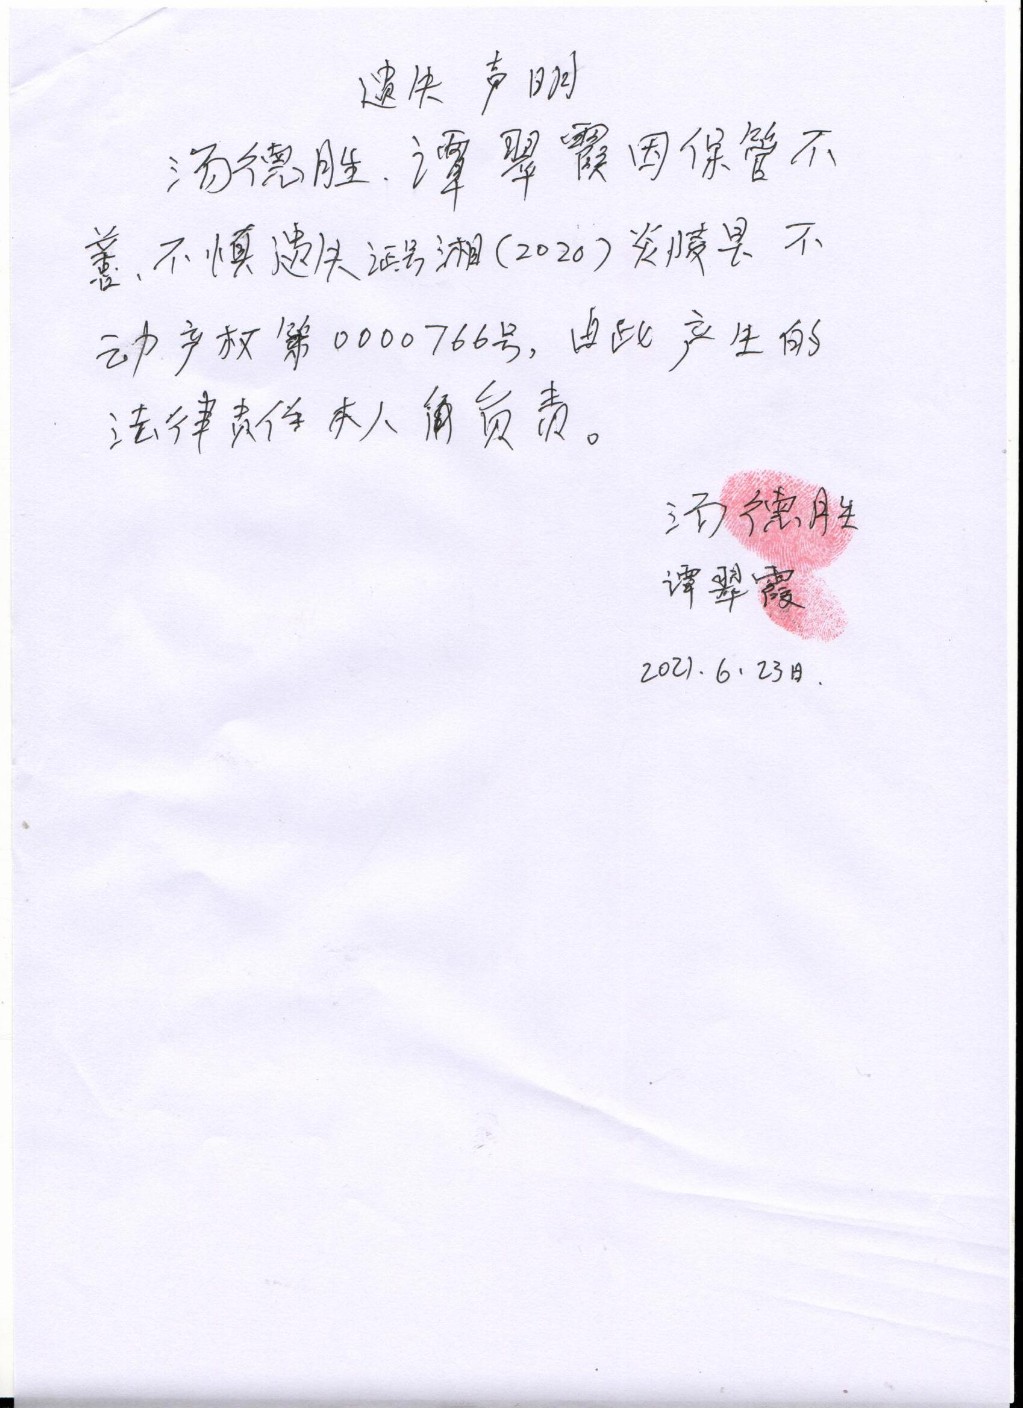 遗失声明
汤德胜、谭翠霞因保管不
善、不慎遗失证号湘(2020)炎陵县不
动产权第0000766号,由此产生的
法律责任本人负责。
汤德胜
谭翠霞
2021.6.23日.